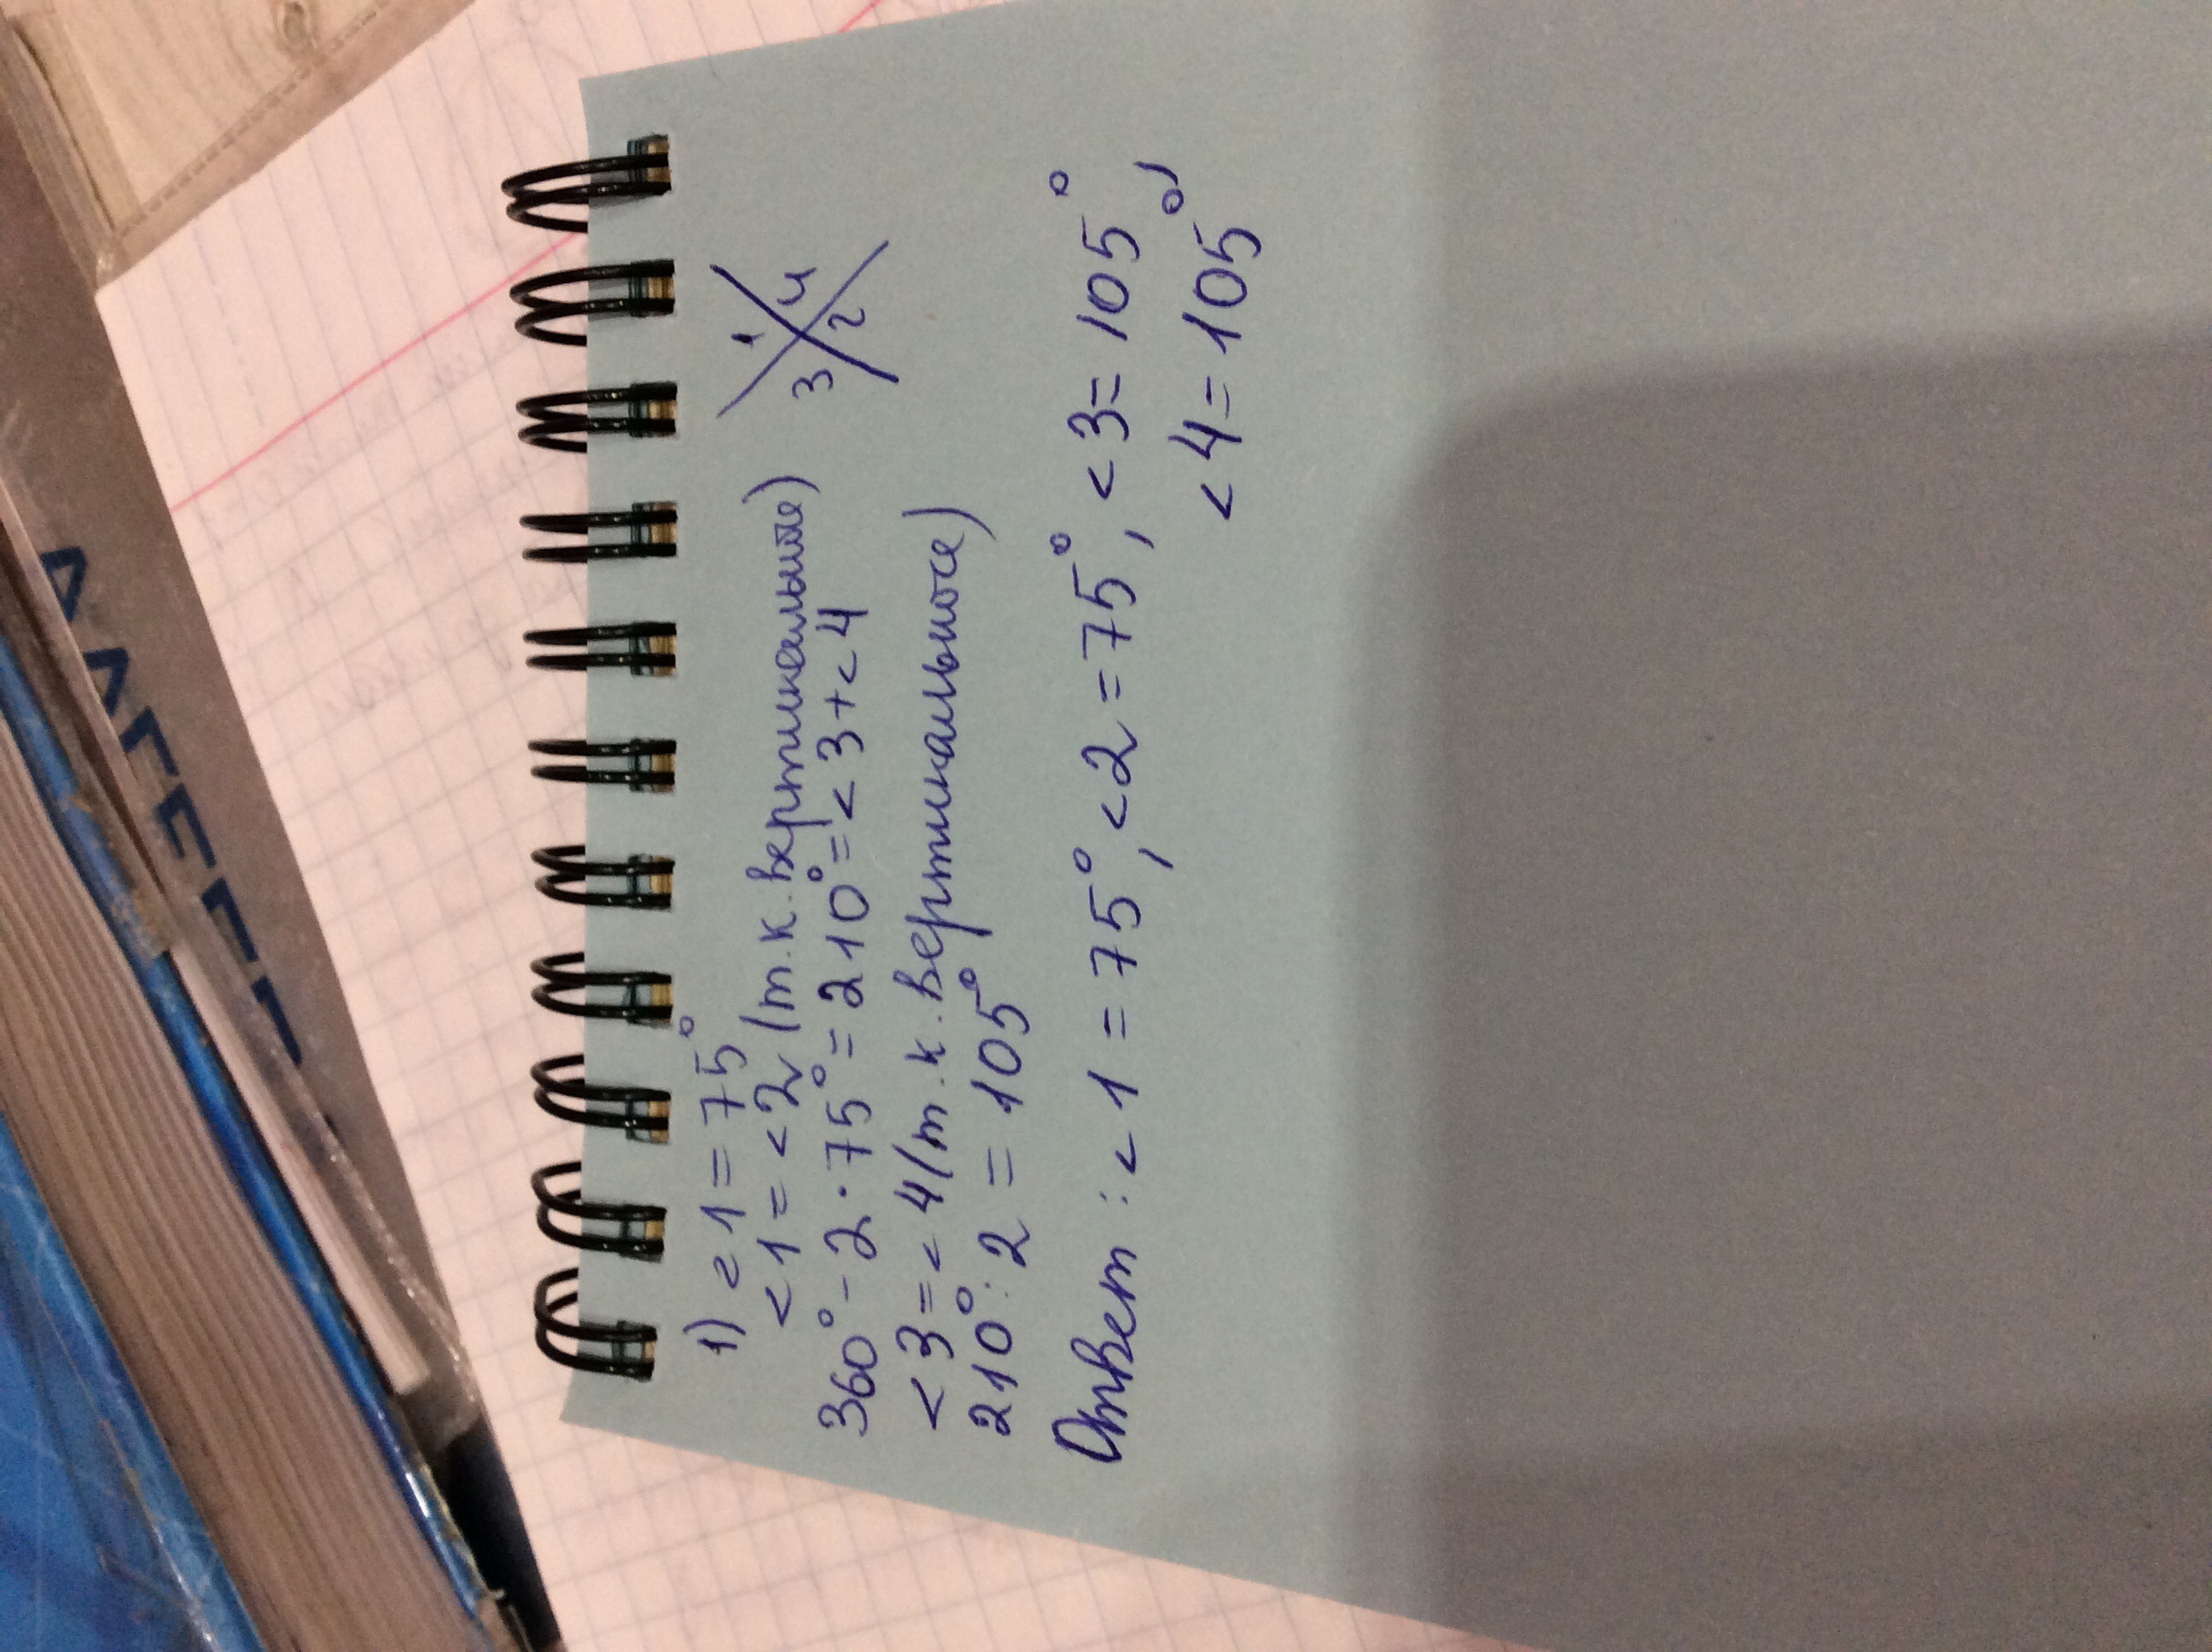 1) <1 = 75°
<1 = <2 (т.к. вертикальные)
360° - 2 · 75° = 210° = <3 + <4
<3 = <4 (т.к. вертикальные)
210° : 2 = 105°
Ответ : <1 = 75°, <2 = 75°, <3 = 105°
<4 = 105°
1
3 4
2